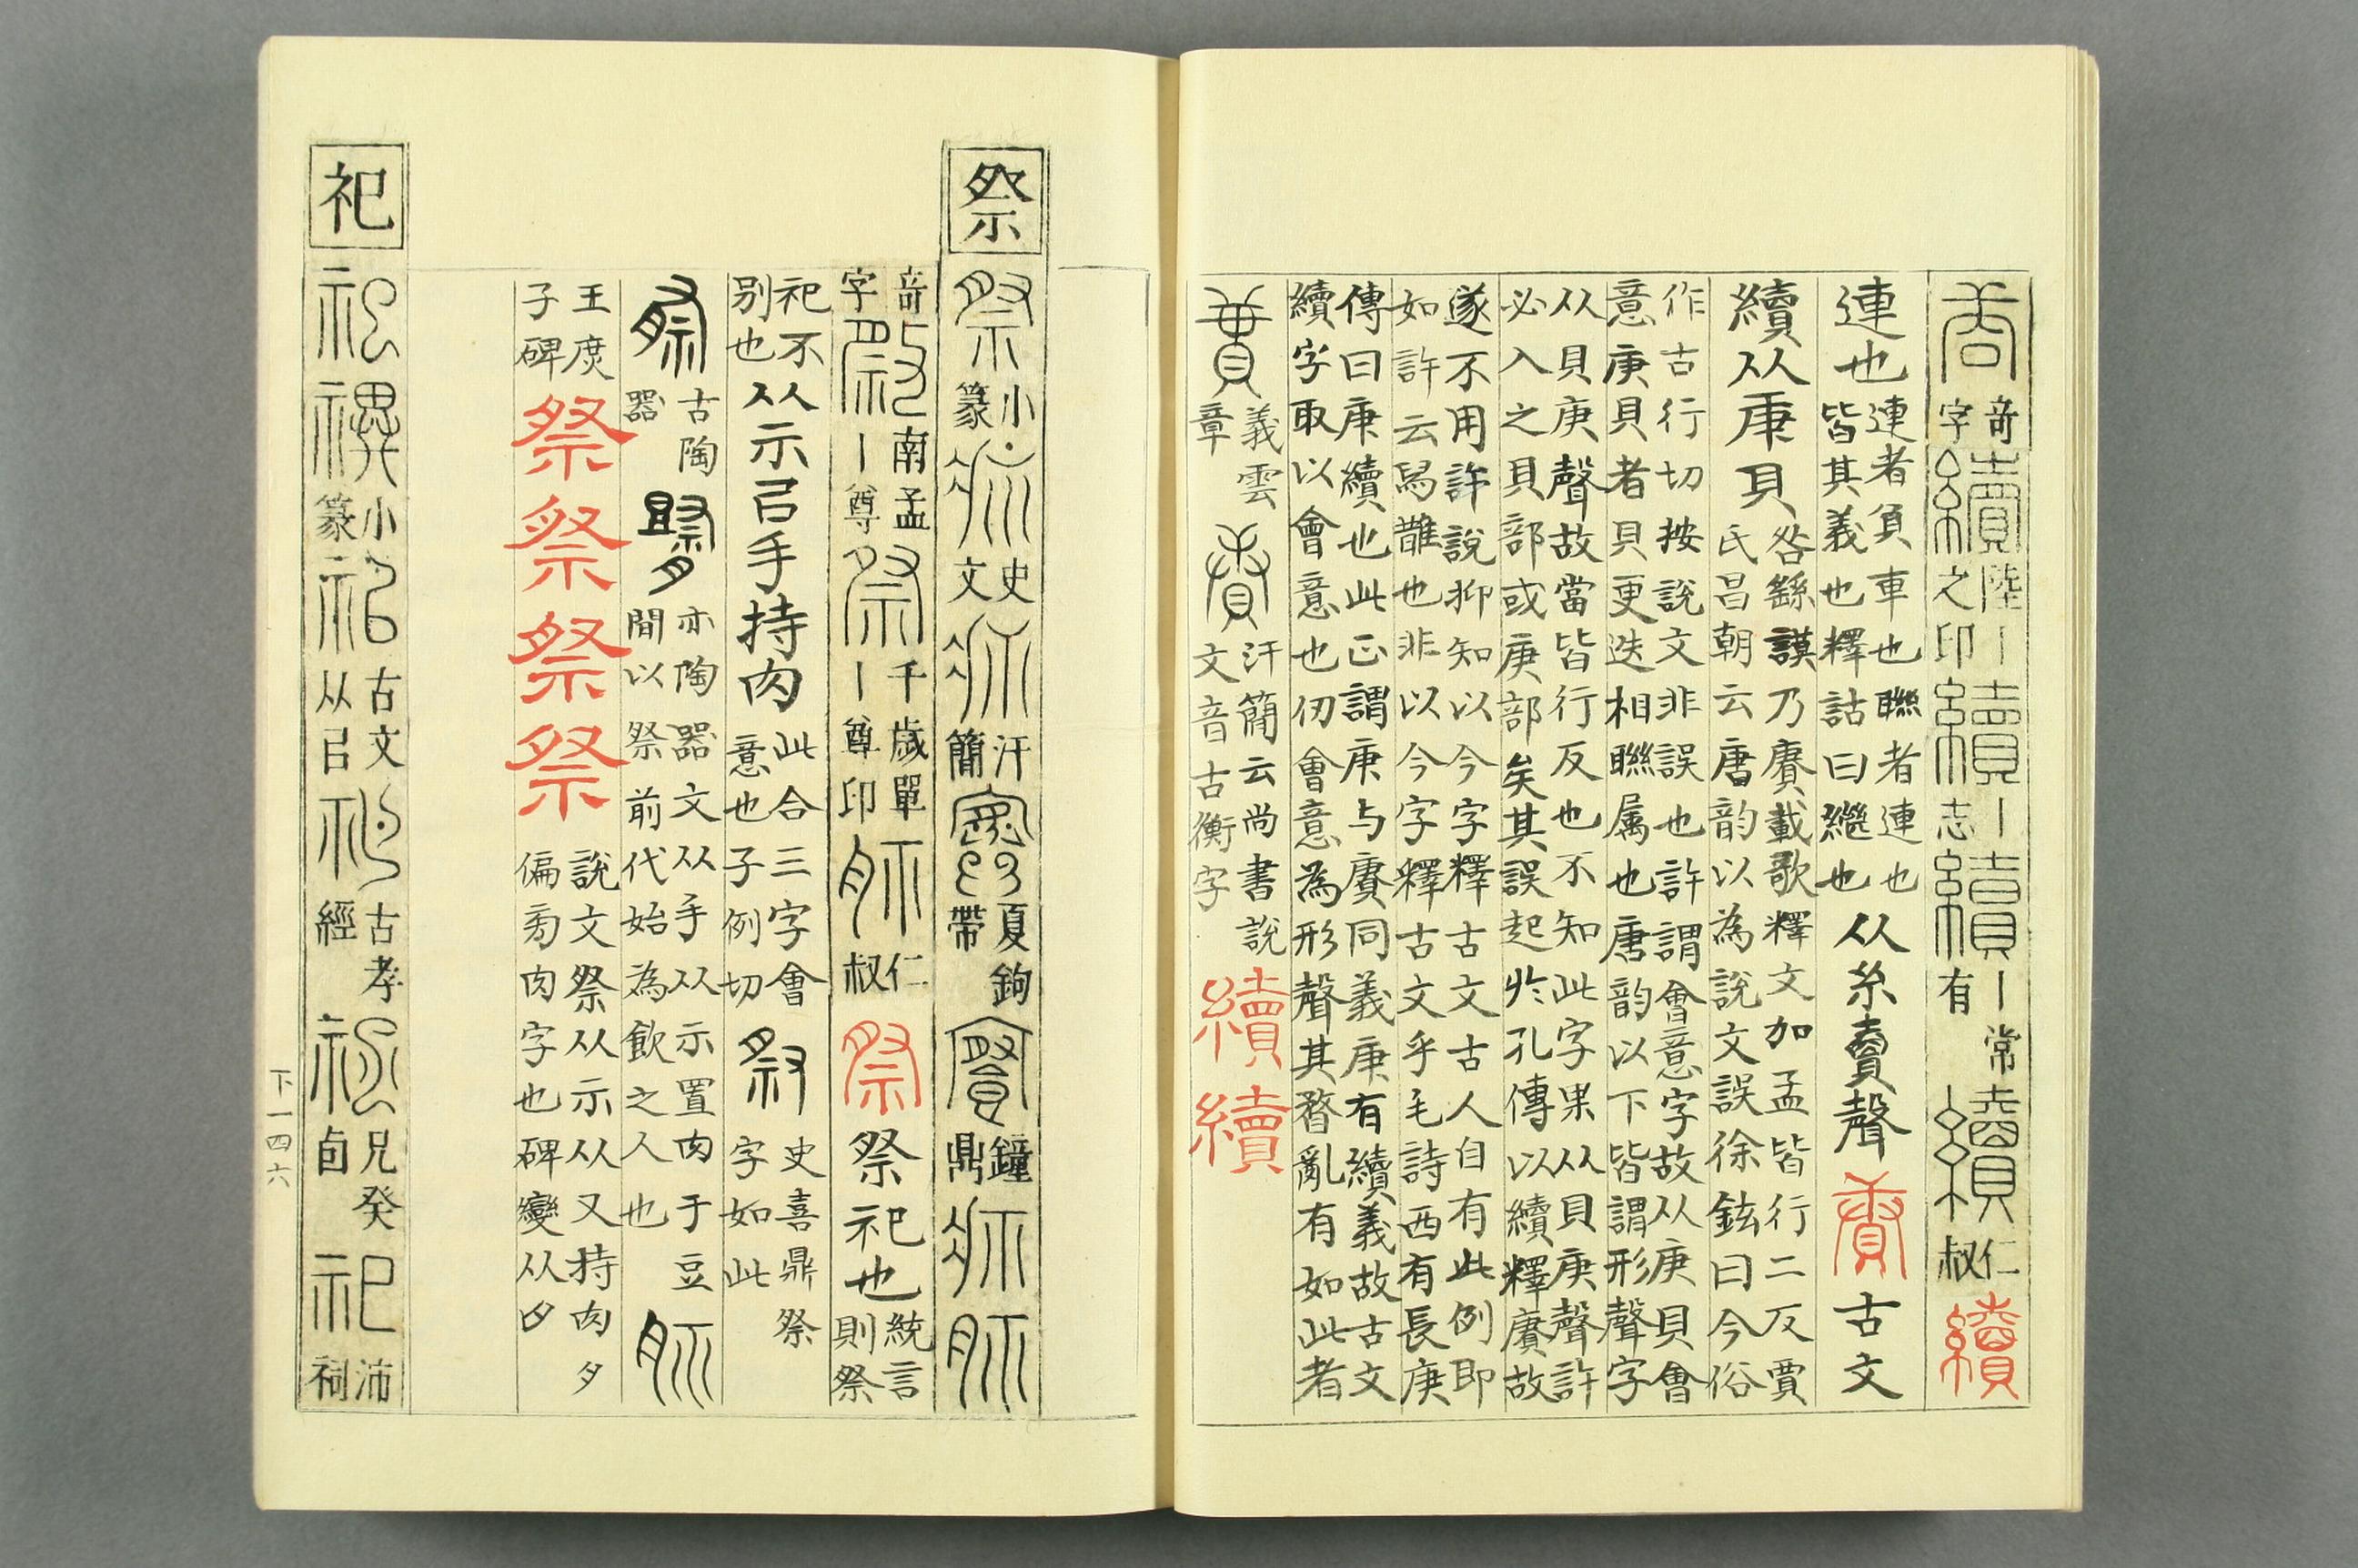 奇字 續 陸丨之印 續 丨志 續 丨有常 續 仁叔 續
連也 連者負車也聯者連也皆其義也釋詁曰繼也 从糸賣聲 賡 古文
續从庚貝 咎繇謨乃賡載歌釋文加孟皆行二反賈氏昌朝云唐韵以為說文誤徐鉉曰今俗
作古行切按說文非誤也許謂會意字故从庚貝會意庚貝者貝更迭相聯属也唐韵以下皆謂形聲字
从貝庚聲故當皆行反也不知此字果从貝庚聲許必入之貝部或庚部矣其誤起於孔傳以續釋賡故
遂不用許說抑知以今字釋古文古人自有此例即如許云舄誰也非以今字釋古文乎毛詩西有長庚
傳曰庚續也此正謂庚与賡同義庚有續義故古文續字取以會意也仞會意為形聲其瞀亂有如此者
義雲章 汗簡云尚書說文音古衡字 續 續
祭 祭 小篆 史文 汗簡 夏鉤帶 鐘鼎
奇字 南孟丨尊 祭 千歲單丨尊印 仁叔 祭 祭祀也 統言則祭
祀不別也 从示㠯手持肉 此合三字會意也子例切 史喜鼎祭字如此
古陶器 亦陶器文从手从示置肉于豆間以祭前代始為飲之人也
王庶子碑 祭 祭 祭 祭 說文祭从示从又持肉夕偏旁肉字也碑變从夕
祀 祀 小篆 古文从㠯 古孝經 兄癸卣 祀 沛祠
下一四六